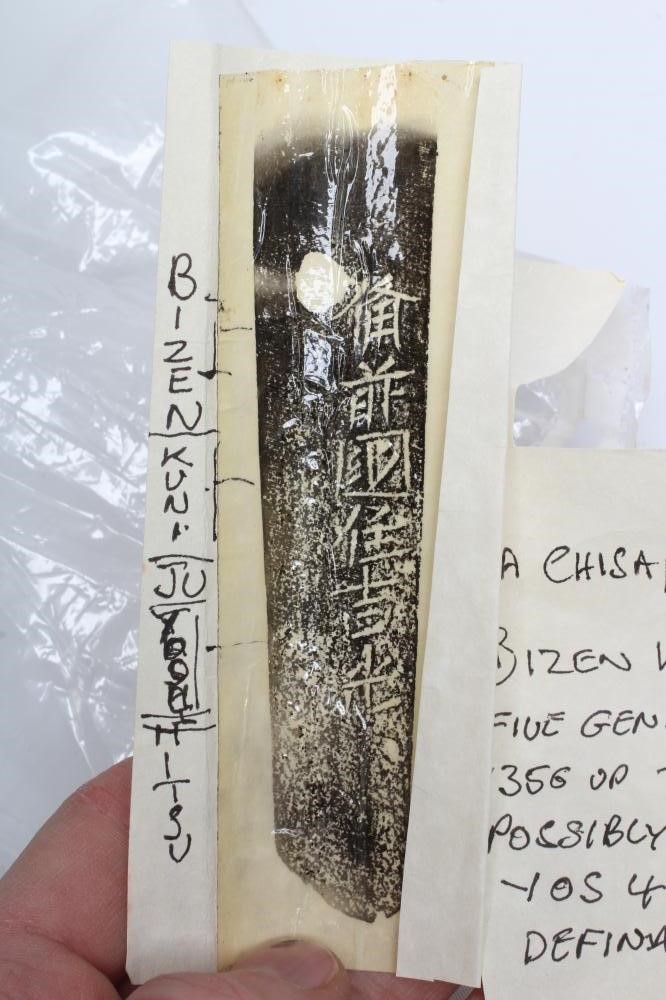 BIZEN KUNI JU
備前國住吉光
A CHISA
BIZEN
FIVE GEN
356 UP
POSSIBLY
YOS 4
DEFINA